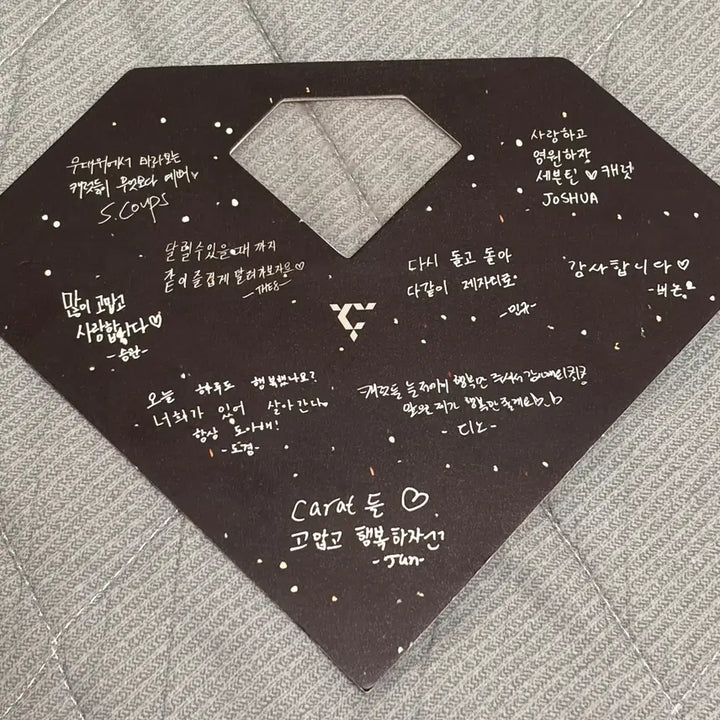 무대위에서 바라보는
캐럿들이 무엇보다 예뻐♥
S.COUPS
사랑하고
영원하장
세븐틴 ♡ 캐럿
JOSHUA
달릴수있을때 까지
같이 즐겁게 달려가보자용♡
-THE8-
다시 돌고 돌아
다같이 제자리로
-민규-
감사합니다♡
-버논-
많이 고맙고
사랑합니다♡
-승관-
오늘 하루도 행복했나요?
너희가 있어 살아간다
항상 도아해!
-도겸-
캐럿들 늘 저에게 행복만 주셔서 감사해
앞으로 제가 행복만 줄게요
-디노-
Carat 들 ♡
고맙고 행복하자
-Jun-